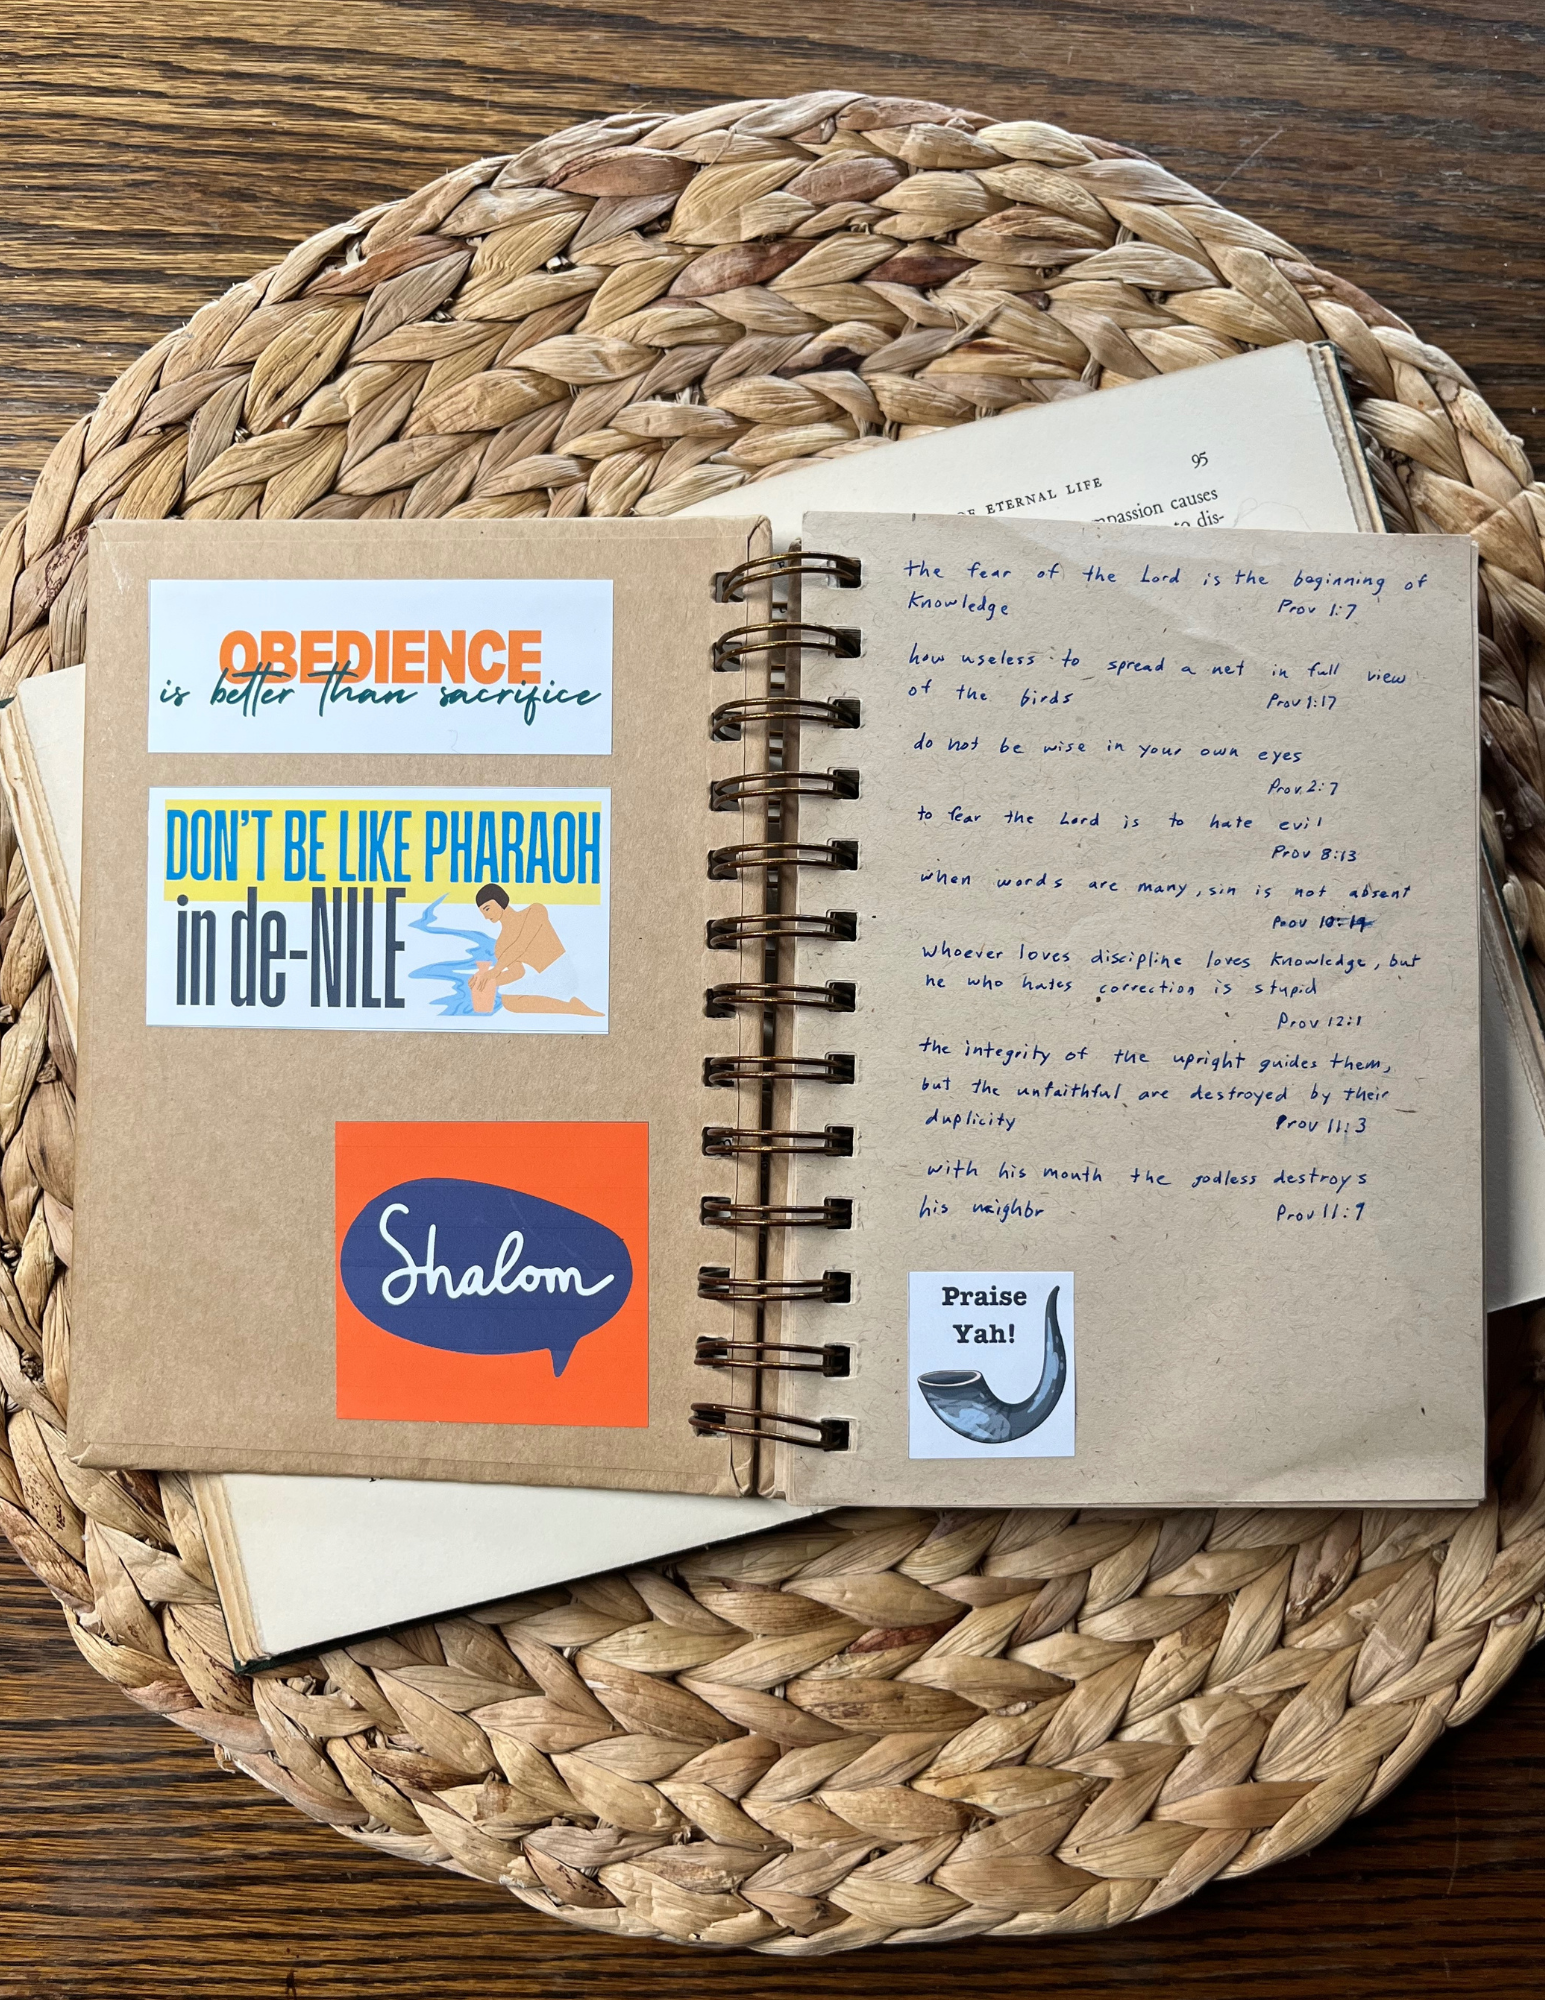 95
OF ETERNAL LIFE
causes
to dis-
OBEDIENCE
is better than sacrifice
DON'T BE LIKE PHARAOH
in de-NILE
Shalom
the fear of the Lord is the beginning of
knowledge Prov 1:7
how useless to spread a net in full view
of the birds Prov 1:17
do not be wise in your own eyes
Prov 2:7
to fear the Lord is to hate evil
Prov 8:13
when words are many, sin is not absent
Prov 10:19
whoever loves discipline loves knowledge, but
he who hates correction is stupid
Prov 12:1
the integrity of the upright guides them,
but the unfaithful are destroyed by their
duplicity Prov 11:3
with his mouth the godless destroys
his neighbr Prov 11:9
Praise
Yah!